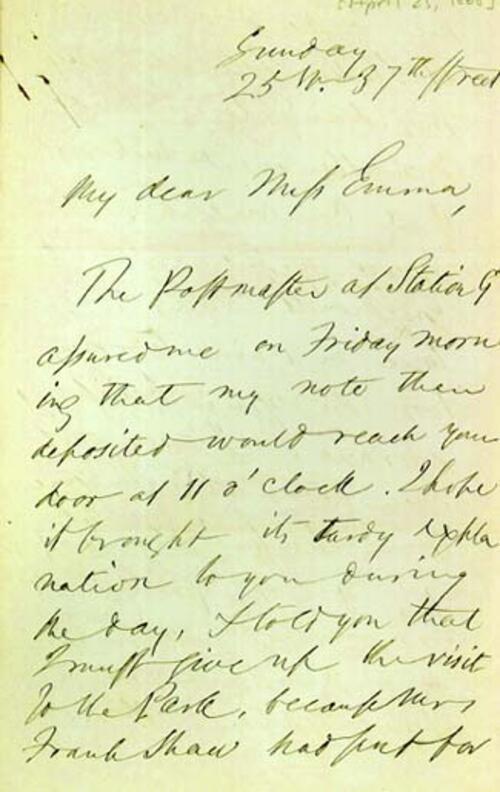 [April 25, 1880]
Sunday
25 W. 37th Street
My dear Miss Emma,
The Postmaster at Station G
assured me on Friday morn
ing that my note then
deposited would reach your
door at 11 o'clock. I hope
it brought its tardy expla
nation to you during
the day, I told you that
I must give up the visit
to the Park, because Mrs
Frank Shaw had sent for